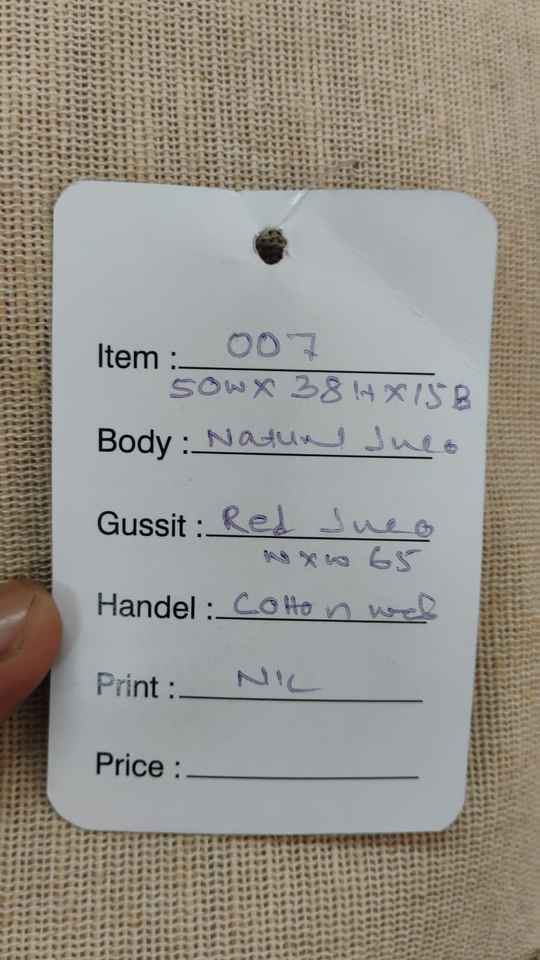 Item : 007
50W X 38H X 15B
Body : Natural Juco
Gussit : Red Juco
65
Handel : Cotton web
Print : NIL
Price :